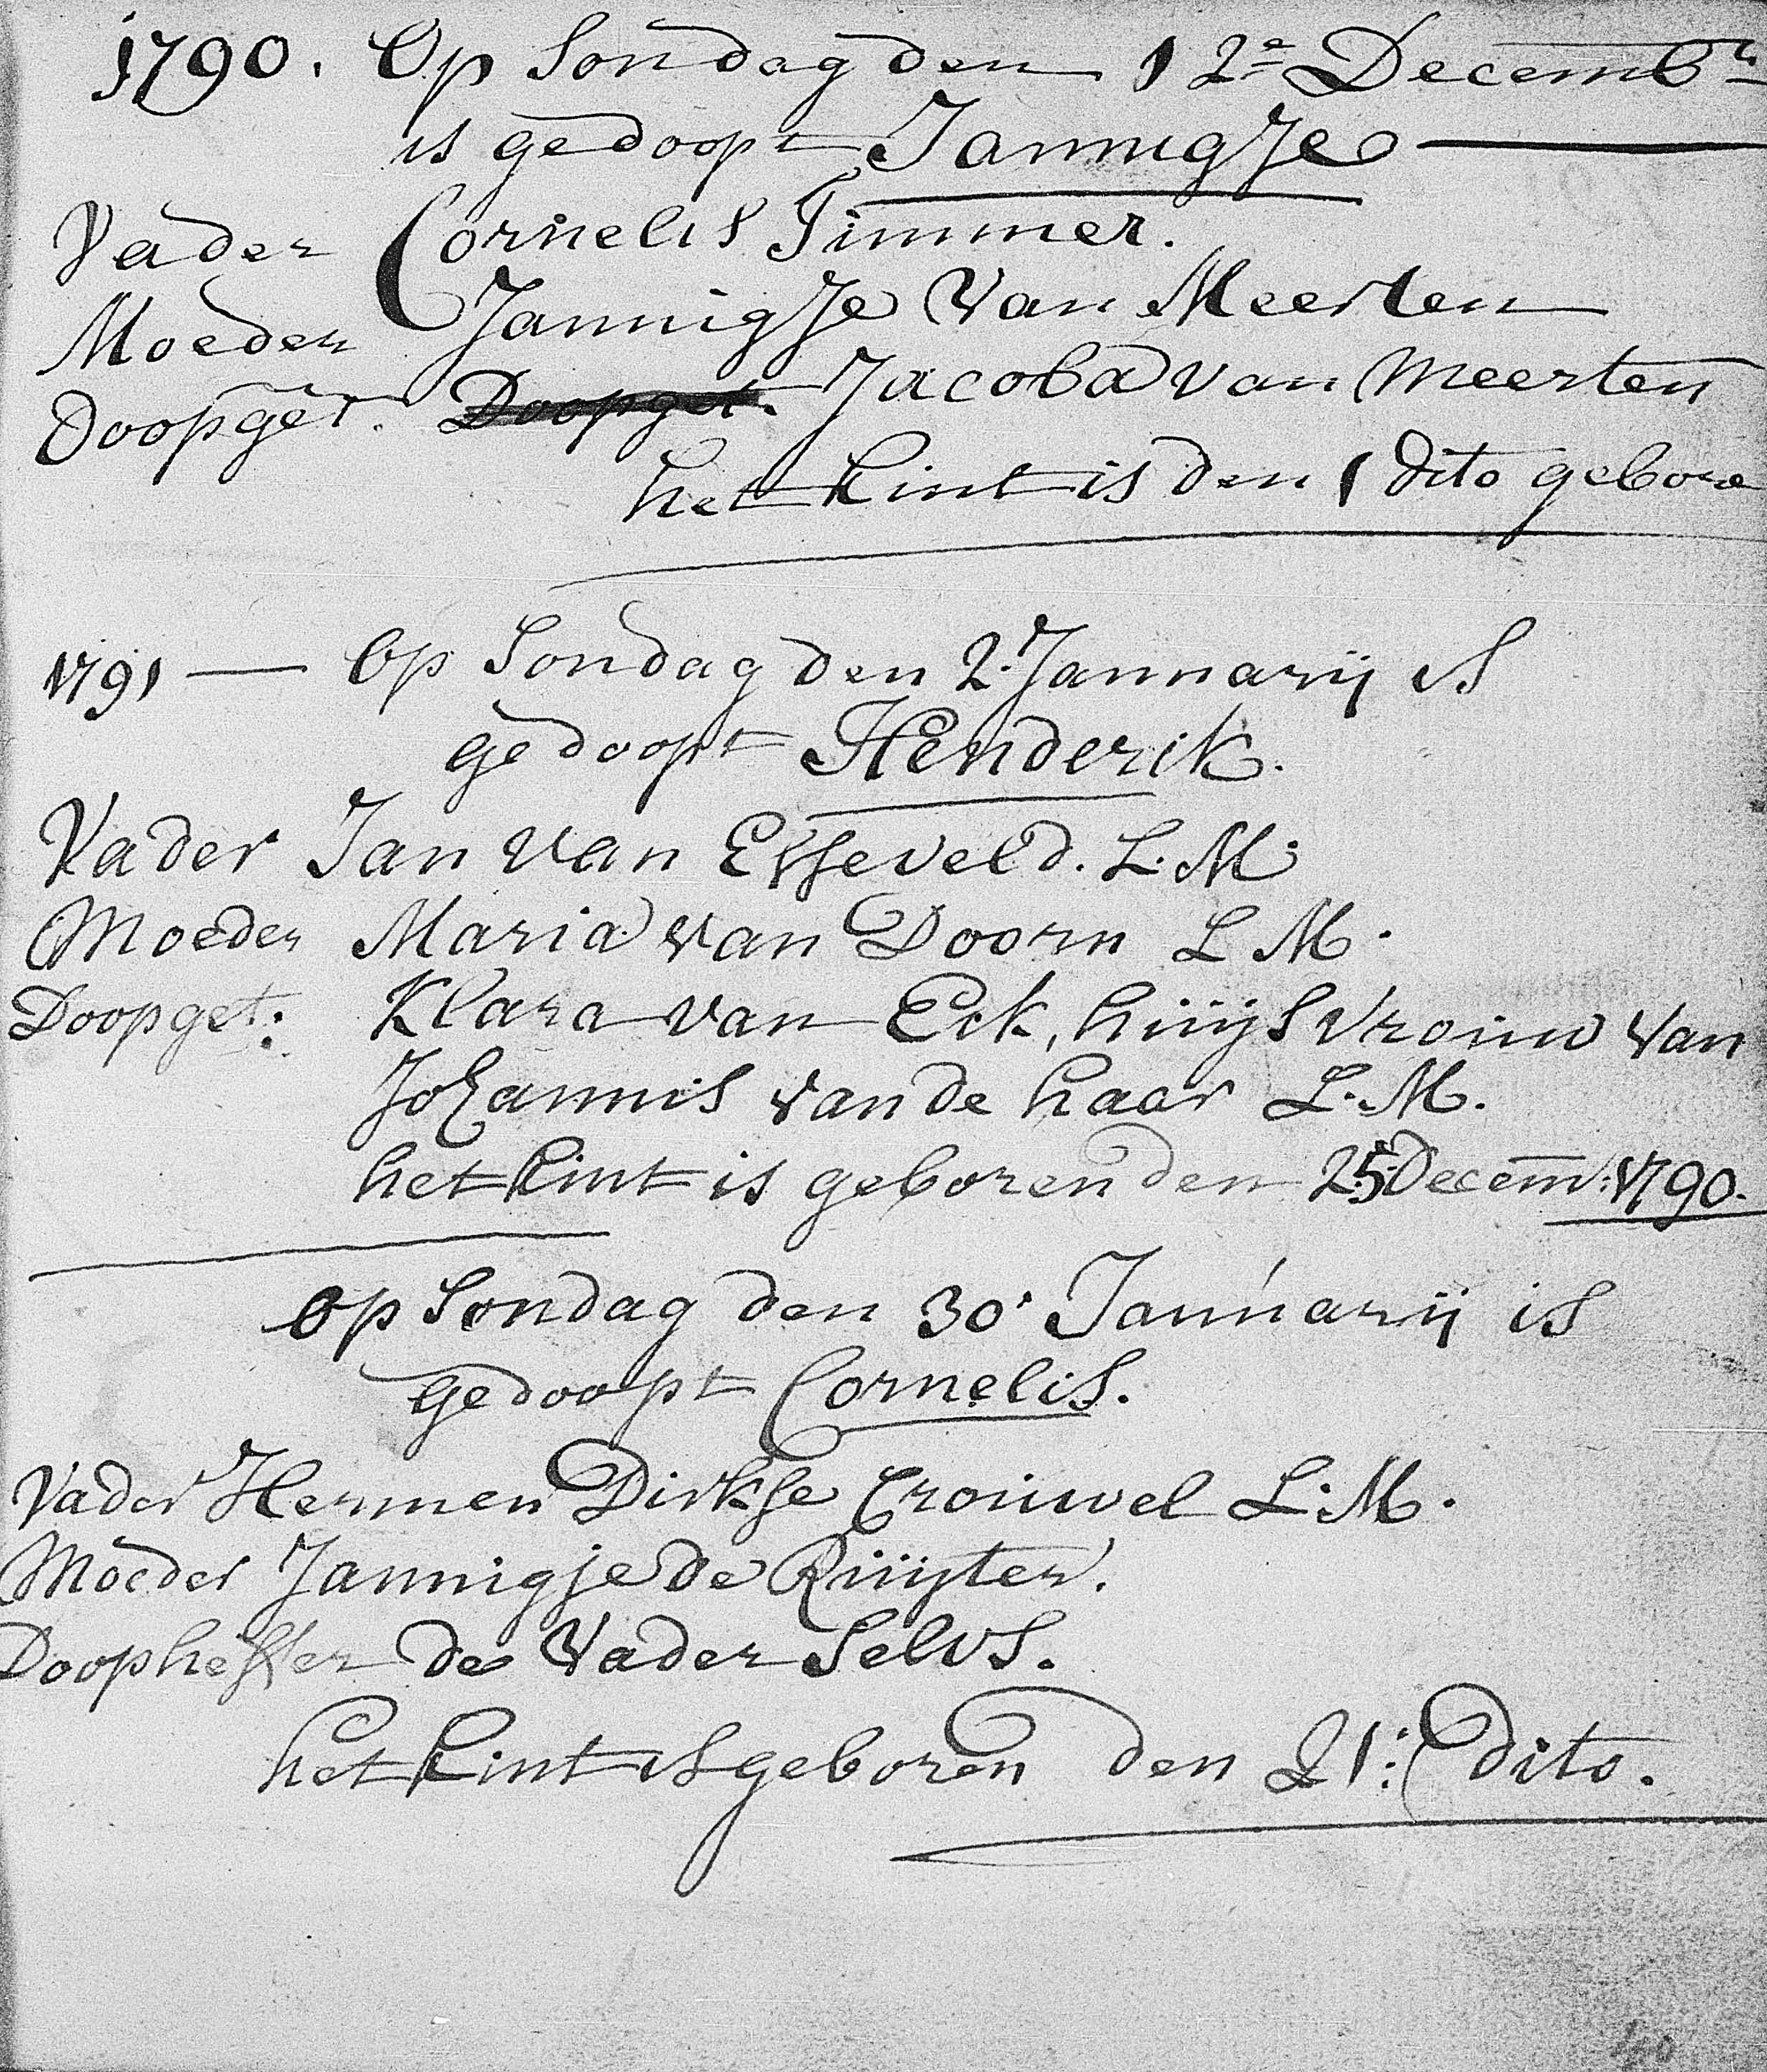 1790. Op Sondag den 12e Decembr
is gedoopt Jannigje
Vader Cornelis Timmer.
Moeder Jannigje Van Meerten
Doopget. Doopget. Jacoba van Meerten
het kint is den 1 dito gebore
1791 — Op Sondag den 2. Januarij is
gedoopt Henderik.
Vader Jan van Esseveld. L. M.
Moeder Maria van Doorn L M.
Doopget: Klara van Eck, huijsvrouw van
Johannis van de haar L. M.
het kint is geboren den 25 Decem: 1790.
op Sondag den 30 Januarij is
gedoopt Cornelis.
Vader Hermen Dirkse Crouwel L. M.
Moeder Jannigje de Ruijter.
Doopheffer de Vader Selvs.
het kint is geboren den 21: dito.